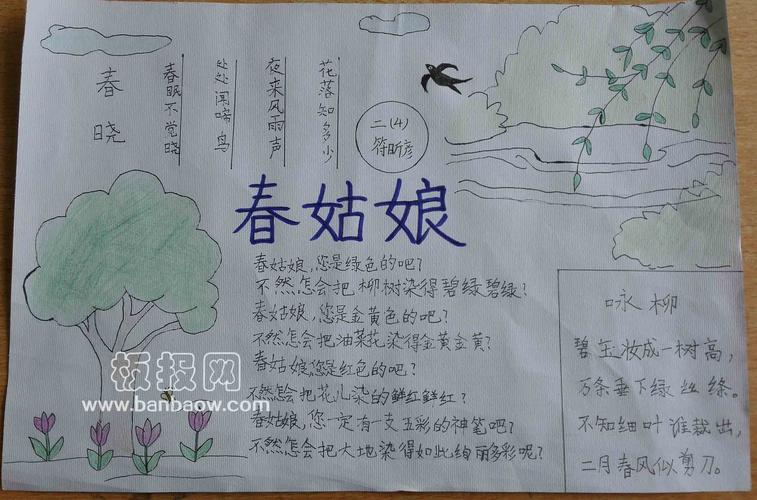 春晓
春眠不觉晓
处处闻啼鸟
夜来风雨声
花落知多少
二(4)
符昕彦
春姑娘
春姑娘,您是绿色的吧?
不然怎会把柳树染得碧绿碧绿?
春姑娘,您是金黄色的吧?
不然怎会把油菜花染得金黄金黄?
春姑娘您是红色的吧?
不然怎会把花儿染的鲜红鲜红?
春姑娘,您一定有一支五彩的神笔吧?
不然怎会把大地染得如此绚丽多彩呢?
咏柳
碧玉妆成一树高,
万条垂下绿丝绦。
不知细叶谁裁出,
二月春风似剪刀。
板报网
www.banbaow.com